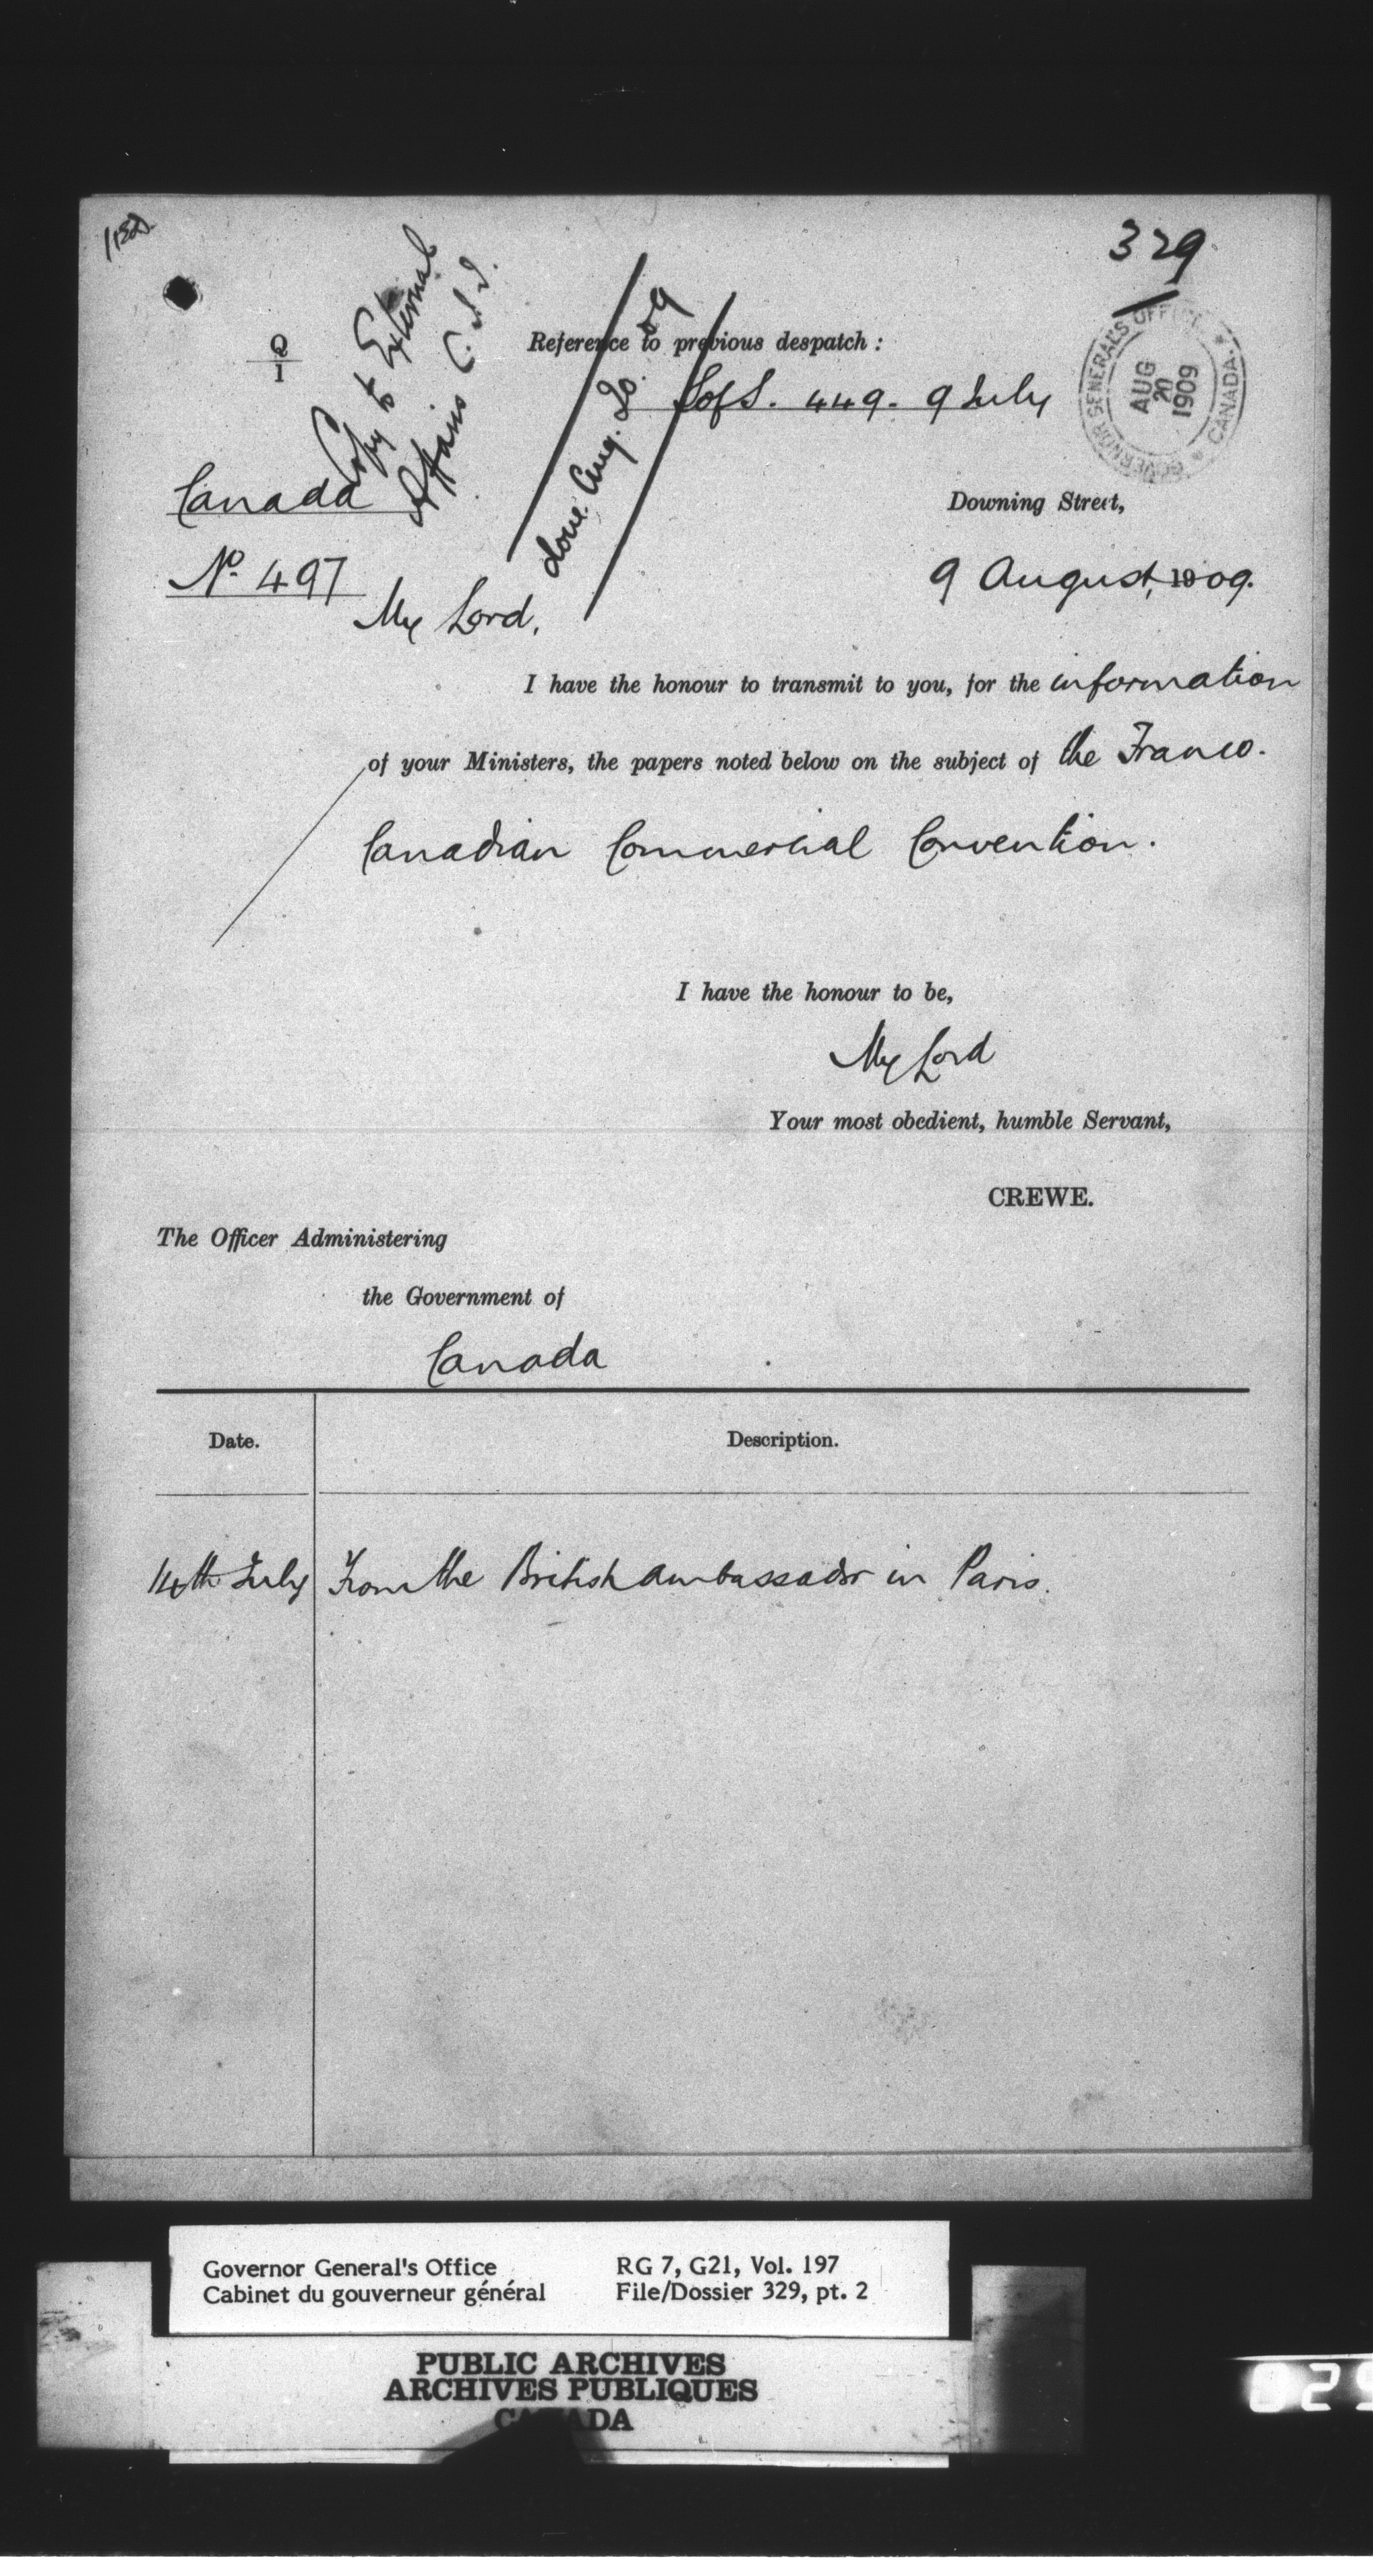 329
Q
1
Copy to External
Affairs
done. Aug. 20. 09
Reference to previous despatch :
S of S. 449. 9 July
GOVERNOR GENERAL'S OFFICE
AUG
20
1909
CANADA.
Canada
No. 497
Downing Street,
9 August, 1909.
My Lord,
I have the honour to transmit to you, for the information
of your Ministers, the papers noted below on the subject of the Franco-
Canadian Commercial Convention.
I have the honour to be,
My Lord
Your most obedient, humble Servant,
CREWE.
The Officer Administering
the Government of
Canada
Date.
Description.
14th July
From the British Ambassador in Paris.
Governor General's Office
Cabinet du gouverneur général
RG 7, G21, Vol. 197
File/Dossier 329, pt. 2
PUBLIC ARCHIVES
ARCHIVES PUBLIQUES
CANADA